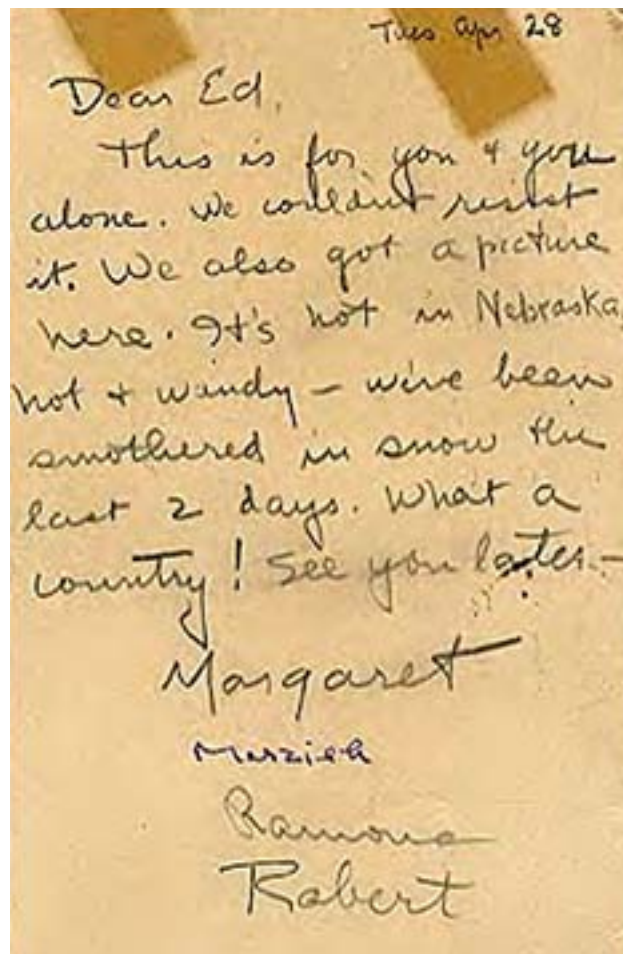 Tues Apr 28
Dear Ed,
This is for you & you
alone. We couldn't resist
it. We also got a picture
here. It's hot in Nebraska,
hot & windy – we've been
smothered in snow the
last 2 days. What a
country! See you later –
Margaret
Marzieh
Ramona
Robert